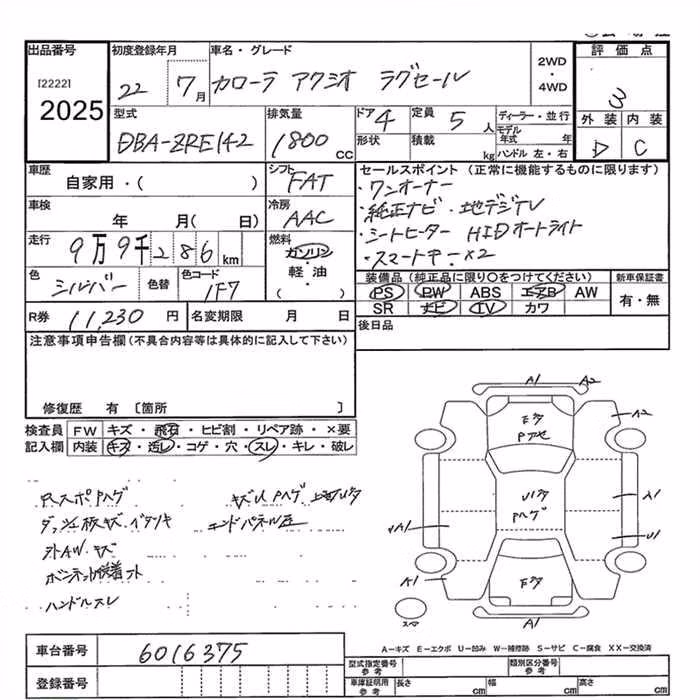 出品番号
[2222]
2025
初度登録年月
22 7月
車名・グレード
カローラ アクシオ ラグゼール
2WD
・
4WD
評価点
3
型式
DBA-ZRE142
排気量
1800 CC
ドア 4
形状
定員 5 人
積載 kg
ディーラー・並行
モデル年式 年
ハンドル 左・右
外装 内装
D C
車歴
自家用・( )
シフト
FAT
車検
年 月( 日)
冷房
AAC
走行
9万9千286 km
燃料
ガソリン
・
軽・油
・
( )
色
シルバー
色替
色コード
1F7
R券 11,230 円
名変期限 月 日
セールスポイント (正常に機能するものに限ります)
・ワンオーナー
・純正ナビ・地デジTV
・シートヒーター HIDオートライト
・スマートキー×2
装備品(純正品に限り○をつけてください)
PS PW ABS エアB AW
SR ナビ TV カワ
新車保証書
有・無
後日品
注意事項申告欄(不具合内容等は具体的に記入して下さい)
修復歴 有〔箇所 〕
検査員記入欄
FW キズ・飛石・ヒビ割・リペア跡・×要
内装 キズ・汚レ・コゲ・穴・スレ・キレ・破レ
ダッシュ板キズ・イタミキ
エンドパネル圧
外AW キズ
ハンドルスレ
A1 A2
A2
A1
U1
A1
A1
スマ
A-キズ E-エクボ U-凹み W-補修跡 S-サビ C-腐食 XX-交換済
車台番号 6016375
登録番号
型式指定番号 参考
類別区分番号 参考
車庫証明用 参考
長さ cm 幅 cm 高さ cm